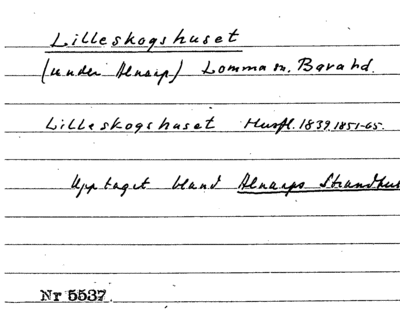 Lilleskogshuset
(under Alnarp) Lomma sn. Bara hd.
Lilleskogshuset Husfl. 1839, 1851-65.
Upptaget bland Alnarps Strandhus
Nr 5537.